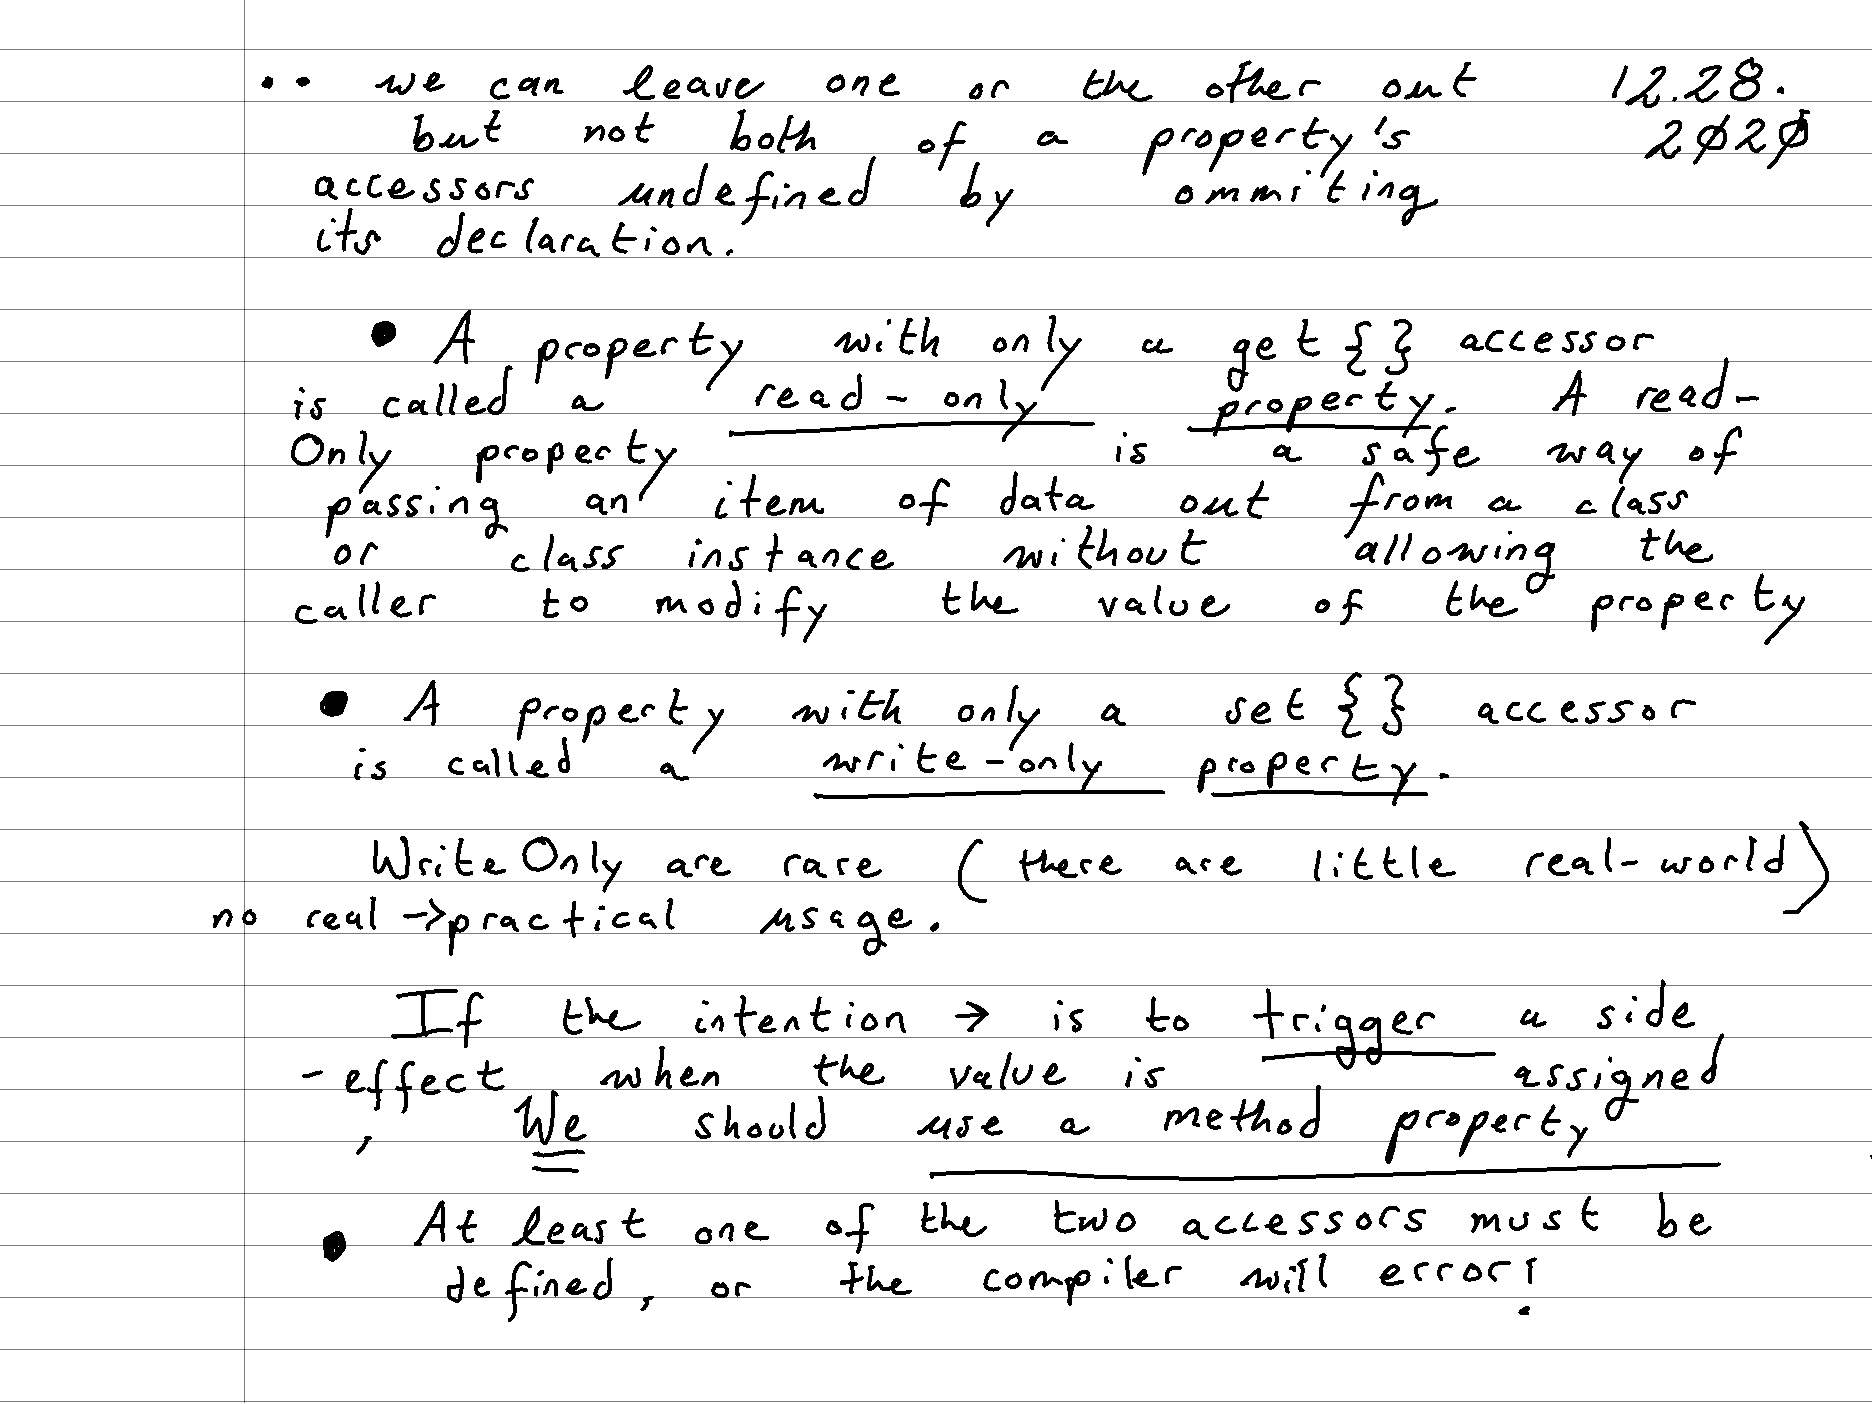 •• we can leave one or the other out 12.28.
but not both of a property's 2020
accessors undefined by ommiting
its declaration.
• A property with only a get {} accessor
is called a read-only property. A read-
Only property is a safe way of
passing an item of data out from a class
or class instance without allowing the
caller to modify the value of the property
• A property with only a set {} accessor
is called a write-only property.
Write Only are rare (there are little real-world)
no real → practical usage.
If the intention → is to trigger a side
-effect when the value is assigned
, We should use a method property
• At least one of the two accessors must be
defined, or the compiler will error!